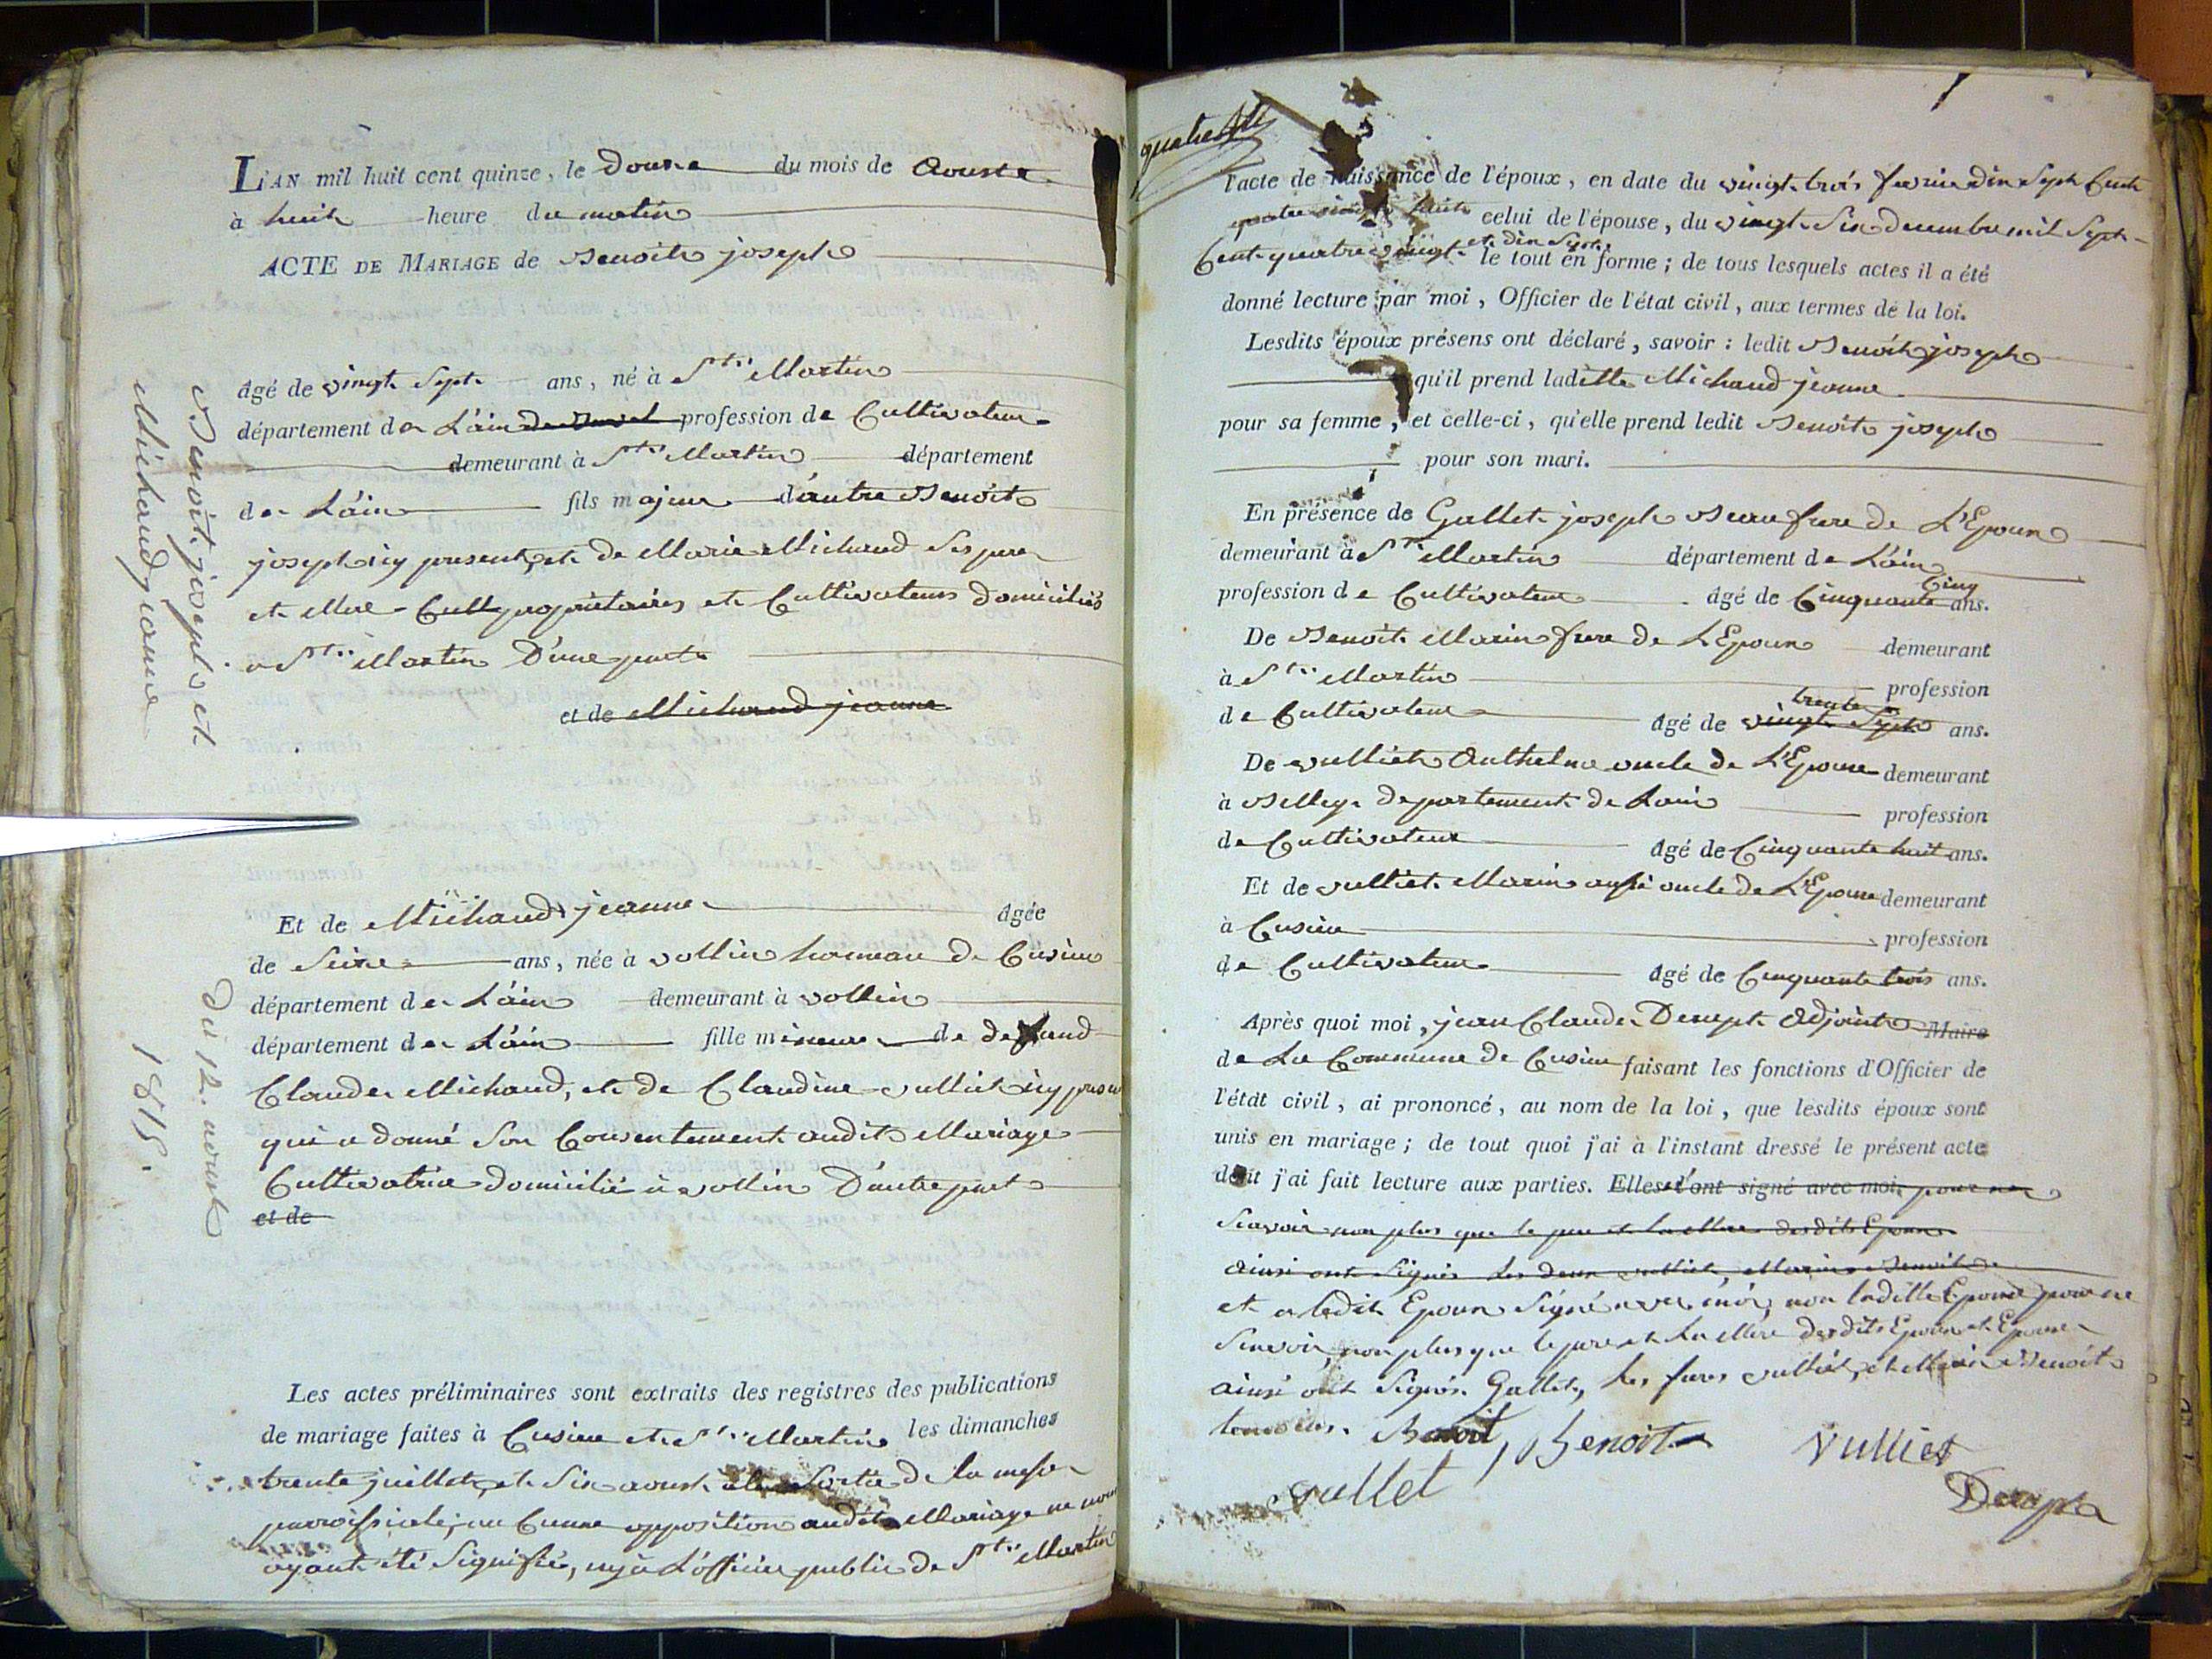 L'AN mil huit cent quinze, le Douze du mois de Aouste
à huit heure du matin
ACTE DE MARIAGE de Benoit joseph
Benoit joseph et
Michaud jeanne
Du 12. aoust
1815.
âgé de vingt Sept ans, né à St. Martin
département de L'ain profession de Cultivateur
demeurant à St. Martin département
de L'ain fils majeur d'autre Benoit
joseph icy present, et de Marie Michaud Ses pere
et Mere propriétaires et Cultivateurs domiciliés
a St. Martin D'une part
et de Michaud jeanne
Et de Michaud jeanne âgée
de Seize ans, née à vollin hameau de Cusieu
département de L'ain demeurant à vollin
département de L'ain fille mineure de
Claude Michaud, et de Claudine vulliet icy
qui a donné Son Consentement audit Mariage
Cultivatrice domicilié à vollin D'autre part
et de
Les actes préliminaires sont extraits des registres des publications
de mariage faites à Cusieu et St. Martin les dimanches
trente juillet, et Six aoust Sortie de la messe
parroissiale, aucunne opposition audit Mariage ne nous
ayant été Signifié, ny à L'officier public de St. Martin
l'acte de naissance de l'époux, en date du vingt trois Sept Cent
quatre vingt huit celui de l'épouse, du vingt Six decembre mil Sept
Cent quatre vingt et dix Sept, le tout en forme ; de tous lesquels actes il a été
donné lecture par moi, Officier de l'état civil, aux termes de la loi.
Lesdits époux présens ont déclaré, savoir : ledit Benoit joseph
qu'il prend ladite Michaud jeanne
pour sa femme, et celle-ci, qu'elle prend ledit Benoit joseph
pour son mari.
En présence de Gullet joseph Beau frere de L'Epoux
demeurant à St. Martin département de L'ain
profession de Cultivateur âgé de Cinquante Cinq ans.
De Benoit Marin frere de L'Epoux demeurant
à St. Martin profession
de Cultivateur âgé de vingt Sept trente ans.
De vulliet Anthelme oncle de L'Epouse demeurant
à Belley departement de Lain profession
de Cultivateur âgé de Cinquante huit ans.
Et de vulliet Marin aussi oncle de L'Epouse demeurant
à Cusieu profession
de Cultivateur âgé de Cinquante trois ans.
Après quoi moi, jean Claude Adjoint Maire
de La Commune de Cusieu faisant les fonctions d'Officier de
l'état civil, ai prononcé, au nom de la loi, que lesdits époux sont
unis en mariage ; de tout quoi j'ai à l'instant dressé le présent acte
dont j'ai fait lecture aux parties. Elles l'ont signé avec moi, pour ne
Scavoir non plus que le pere et la Mere desdits Epoux
ainsi ont Signés Les deux vulliet, Marin Benoit
et a ledit Epoux Signé avec moi, non ladite Epouse pour ne
Scavoir, non plus que le pere et La Mere desdits Epoux et Epouse
ainsi ont Signés Gullet, les freres vulliet, et Marin Benoit
temoins. Benoit, Benoit vulliet
vulliet